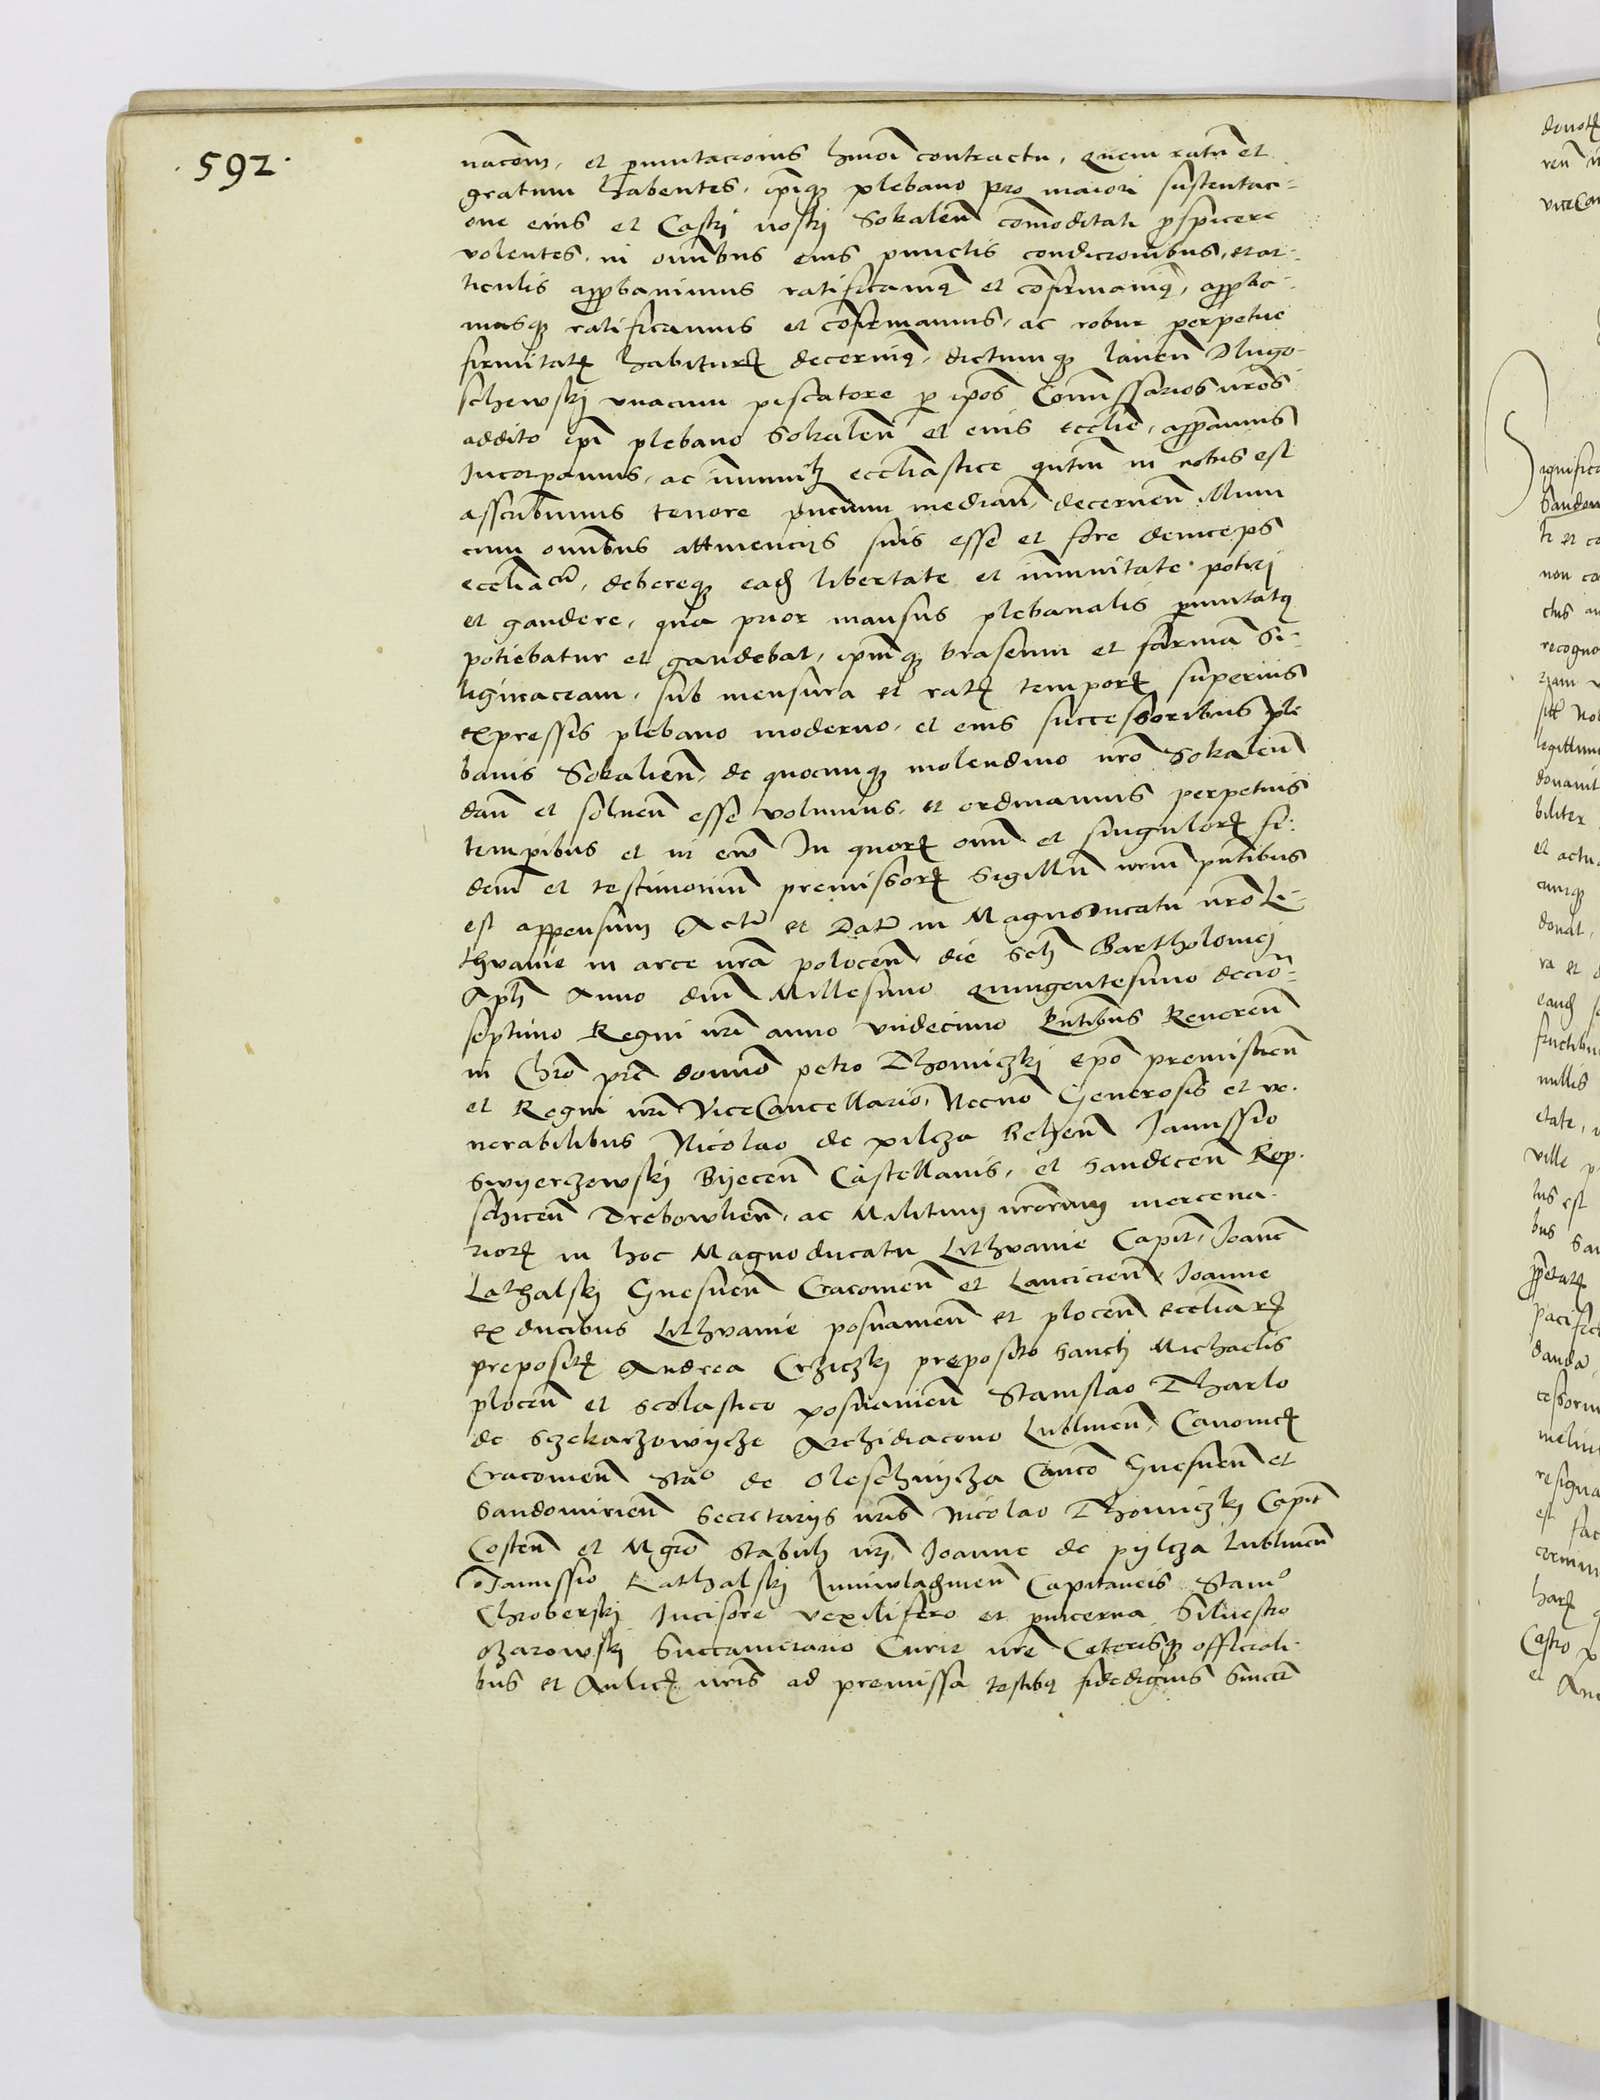 .592.
nacōm, et p̄mutacionis hm̄oi contractu, quem ratū et
gratum habentes, ip̄iq̃ plebano pro maiori sustentaci-
one eius et Castri nostri Sokalen̄ com̄oditati p̱spicere
volentes, in om̄ibus eius punctis condicionibus, et ar-
ticulis app̱bauimus ratificauimꝰ et cōfirmauimꝰ, app̱ba-
musq̃ ratificamus et cōfirmamus, ac robur perpetue
firmitatꝭ habiturꝭ decernimꝰ, dictumq̃ laneū Dlugo-
schewskj vnacum piscatore p̱ ip̄os Com̄issarios nr̄os
addito ip̄i plebano Sokalen̄ et eius eccl̄ie, app̱amus
Incorp̱amus, ac im̄unitj eccl̄iastice qn̄tum in nobis est
asscribimus tenore pn̄cium median̄, decernen̄ illum
cum om̄ibus attinencijs suis esse et fore deinceps
eccl̄iacū, debereq̃ ead̄ libertate et im̄unitate potirj
et gaudere, qua prior mansus plebanalis p̄mutatꝰ
potiebatur et gaudebat, ip̄mq̃ braseum et farinā Si-
ligineaceam, sub mensura et ratꝭ temporꝭ superius
expressis plebano moderno, et eius successoribus ple
banis Sokalien̄, de quocunq̃ molendino nr̄o Sokalien̄
dan̄ et soluen̄ esse volumus, et ordinamus perpetuis
temp̱ibus et in euū In quorꝭ om̄ et singulorꝭ fi-
dem̄ et testimonium premissorꝭ Sigillū nr̄um pn̄tibus
est appensum Actū et Datū in Magnoducatu nr̄o Li-
thvanie in arce nr̄a polocen̄ die sctj Bartholomej
Apl̄j Anno dn̄i Millesimo quingentesimo decīo-
septimo Regni nr̄i anno vndecimo Pn̄tibus Reueren̄
in Chr̄o pr̄e domīo petro Thomiczkj ep̄o premislien̄
et Regni nr̄i ViceCancellario, Necno Generosis et ve-
nerabilibus Nicolao de pilcza Belzen̄ Janussio
Swyerczowskj Byecen̄ Castellanis, et Sandecen̄ Rop-
schicen̄ Trebowlien̄, ac Militum nr̄orum mercena-
riorꝭ in hoc Magnoducatu Lithvanie Capit̄, Joan̄e
Lathalskj Gnesnen̄ Cracouien̄ et Lancicien̄, Joanne
ex ducibus Lithvanie posnanien̄ et plocen̄ eccl̄iarꝭ
prepositꝭ Andrea Crziczkj preposito Sanctj Michaelis
plocen̄ et scolastico posnanien̄ Stanislao Tharlo
de Sczekarzowycze Archidiacono Lublinen̄, Canonicꝭ
Cracouien̄ Stāo de Oleschnycza Can̄co Gnesnen̄ et
Sandomirien̄ Secretarijs nr̄is Nicolao Thomiczkj Capit̄
Costen̄ et Mgr̄o Stabulj nr̄j, Joanne de pylcza Lublinen̄
Janussio Lathalskj Iuniwladislauien̄ Capitaneis Stanio
Chroberskj Incisore vexilifero et pincerna Siluestro
Ozarowskj Succamerario Curie nr̄e Ceterisq̃ officiali-
bus et Aulicꝭ nr̄is ad premissa testibꝰ fidedignis Sincē